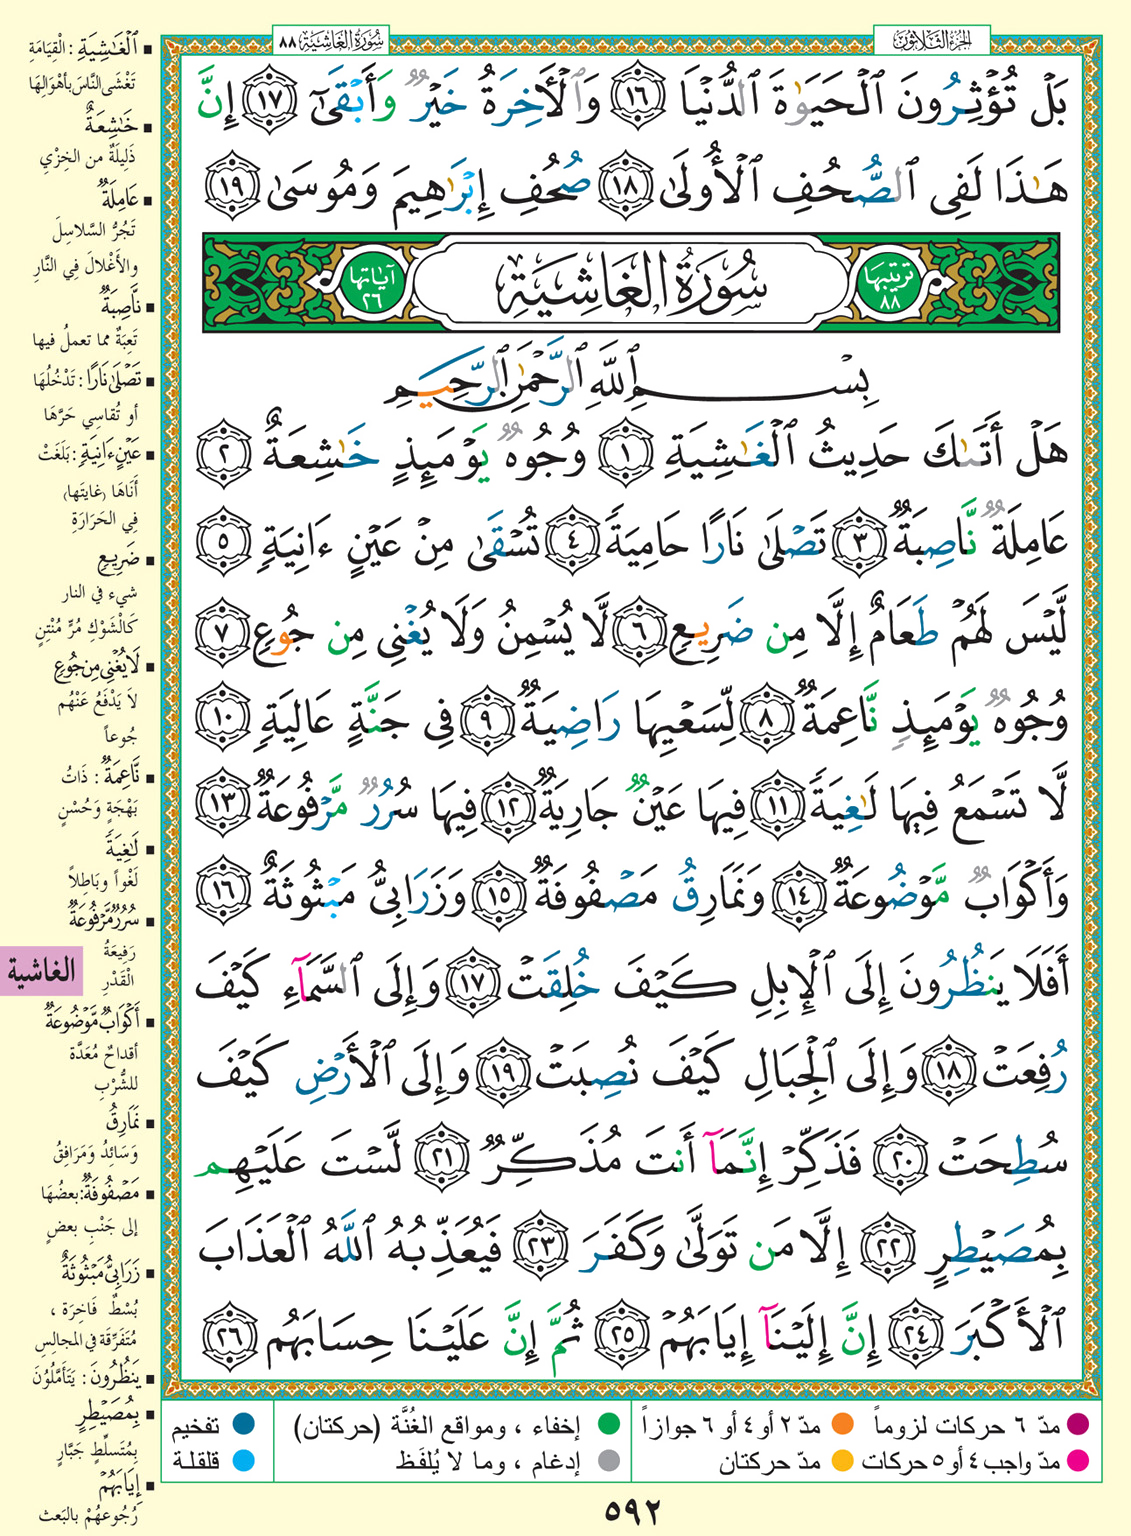 الجزء الثلاثون
سورة الغاشية ٨٨
بَلْ تُؤْثِرُونَ ٱلْحَيَوٰةَ ٱلدُّنْيَا ١٦ وَٱلْأَخِرَةُ خَيْرٌ وَأَبْقَىٰٓ ١٧ إِنَّ
هَـٰذَا لَفِى ٱلصُّحُفِ ٱلْأُولَىٰ ١٨ صُحُفِ إِبْرَٰهِيمَ وَمُوسَىٰ ١٩
ترتيبها ٨٨
سُورَةُ الغَاشِيَةِ
آياتها ٢٦
بِسْمِ ٱللَّهِ ٱلرَّحْمَـٰنِ ٱلرَّحِيمِ
هَلْ أَتَىٰكَ حَدِيثُ ٱلْغَـٰشِيَةِ ١ وُجُوهٌ يَوْمَئِذٍ خَـٰشِعَةٌ ٢
عَامِلَةٌ نَّاصِبَةٌ ٣ تَصْلَىٰ نَارًا حَامِيَةً ٤ تُسْقَىٰ مِنْ عَيْنٍ ءَانِيَةٍ ٥
لَّيْسَ لَهُمْ طَعَامٌ إِلَّا مِن ضَرِيعٍ ٦ لَّا يُسْمِنُ وَلَا يُغْنِى مِن جُوعٍ ٧
وُجُوهٌ يَوْمَئِذٍ نَّاعِمَةٌ ٨ لِّسَعْيِهَا رَاضِيَةٌ ٩ فِى جَنَّةٍ عَالِيَةٍ ١٠
لَّا تَسْمَعُ فِيهَا لَـٰغِيَةً ١١ فِيهَا عَيْنٌ جَارِيَةٌ ١٢ فِيهَا سُرُرٌ مَّرْفُوعَةٌ ١٣
وَأَكْوَابٌ مَّوْضُوعَةٌ ١٤ وَنَمَارِقُ مَصْفُوفَةٌ ١٥ وَزَرَابِىُّ مَبْثُوثَةٌ ١٦
أَفَلَا يَنظُرُونَ إِلَى ٱلْإِبِلِ كَيْفَ خُلِقَتْ ١٧ وَإِلَى ٱلسَّمَآءِ كَيْفَ
رُفِعَتْ ١٨ وَإِلَى ٱلْجِبَالِ كَيْفَ نُصِبَتْ ١٩ وَإِلَى ٱلْأَرْضِ كَيْفَ
سُطِحَتْ ٢٠ فَذَكِّرْ إِنَّمَآ أَنتَ مُذَكِّرٌ ٢١ لَّسْتَ عَلَيْهِم
بِمُصَيْطِرٍ ٢٢ إِلَّا مَن تَوَلَّىٰ وَكَفَرَ ٢٣ فَيُعَذِّبُهُ ٱللَّهُ ٱلْعَذَابَ
ٱلْأَكْبَرَ ٢٤ إِنَّ إِلَيْنَآ إِيَابَهُمْ ٢٥ ثُمَّ إِنَّ عَلَيْنَا حِسَابَهُم ٢٦
■ ٱلْغَـٰشِيَةِ : الْقِيَامَةِ
تَغْشَى النَّاسَ بأهْوَالِهَا
■ خَـٰشِعَةٌ
ذَلِيلَةٌ من الخِزْيِ
■ عَامِلَةٌ
تَجُرُّ السَّلاسِلَ
والأَغْلالَ فِي النَّارِ
■ نَّاصِبَةٌ
تَعِبَةٌ مما تعملُ فيها
■ تَصْلَىٰ نَارًا : تَدْخُلُهَا
أو تُقاسِي حَرَّهَا
■ عَيْنٍ ءَانِيَةٍ : بَلَغَتْ
أنَاهَا (غايتَها)
فِي الحَرَارَةِ
■ ضَرِيعٍ
شيء في النار
كَالْشَوْكِ مُرٌّ مُنْتِنٍ
■ لَا يُغْنِى مِن جُوعٍ
لاَ يَدْفَعُ عَنْهُم
جُوعاً
■ نَّاعِمَةٌ : ذَاتُ
بَهْجَةٍ وَحُسْنٍ
■ لَـٰغِيَةً
لَغْواً وبَاطِلاً
■ سُرُرٌ مَّرْفُوعَةٌ
رَفِيعَةُ
الْقَدْرِ
■ أَكْوَابٌ مَّوْضُوعَةٌ
أقداحٌ مُعَدَّة
للشُّرْبِ
■ نَمَارِقُ
وَسَائِدُ وَمَرَافِقُ
■ مَصْفُوفَةٌ : بعضُهَا
إلى جَنْبِ بعضٍ
■ زَرَابِىُّ مَبْثُوثَةٌ
بُسْطٌ فَاخِرَة ،
مُتَفَرِّقَة في المجالِسِ
■ يَنظُرُونَ : يَتَأَمَّلُوْنَ
■ بِمُصَيْطِرٍ
بِمُتَسلِّطٍ جَبَّارٍ
■ إِيَابَهُمْ
رُجُوعهُمْ بالبَعث
الغاشية
مدّ ٦ حركات لزوماً مدّ ٢ أو ٤ أو ٦ جوازاً إخفاء ، ومواقع الغُنَّة (حركتان) تفخيم
مدّ واجب ٤ أو ٥ حركات مدّ حركتان إدغام ، وما لا يُلفَظ قلقلة
٥٩٢